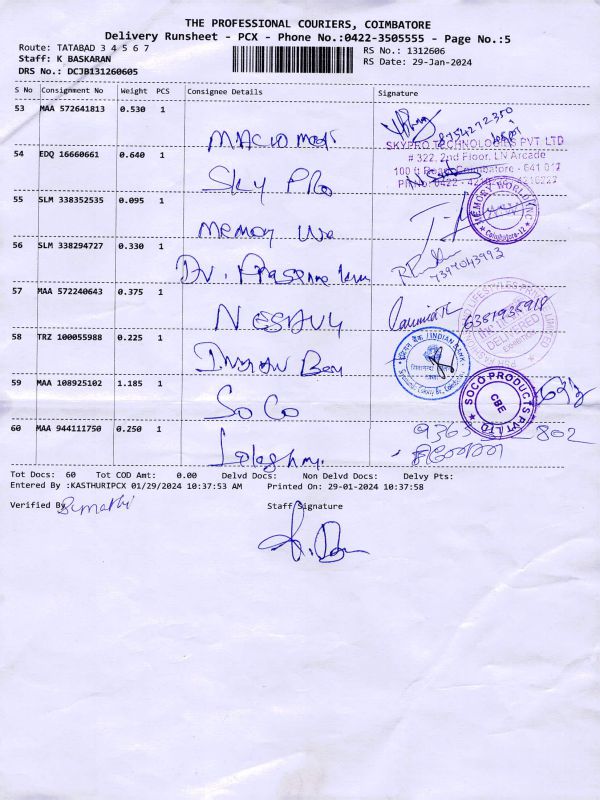 THE PROFESSIONAL COURIERS, COIMBATORE
Delivery Runsheet - PCX - Phone No.:0422-3505555 - Page No.:5
Route: TATABAD 3 4 5 6 7
RS No.: 1312606
Staff: K BASKARAN
RS Date: 29-Jan-2024
DRS No.: DCJB131260605
S No Consignment No Weight PCS Consignee Details Signature
53 MAA 572641813 0.530 1
8754272350
SKYPRO TECHNOLOGIES PVT. LTD
54 EDQ 16660661 0.640 1
# 322, 2nd Floor, LN Arcade
Sky Pro
100 ft Road, Coimbatore - 641 012
55 SLM 338352535 0.095 1
MEMORY WORLD
Coimbatore-12
Memory
56 SLM 338294727 0.330 1
Dr.
57 MAA 572240643 0.375 1
6381936918
DELIVERED
58 TRZ 100055988 0.225 1
INDIAN BANK
Indian Ban
59 MAA 108925102 1.185 1
SOCO PRODUCTS PVT LTD
CBE
SoCo
60 MAA 944111750 0.250 1
802
Tot Docs: 60 Tot COD Amt: 0.00 Delvd Docs: Non Delvd Docs: Delvy Pts:
Entered By :KASTHURIPCX 01/29/2024 10:37:53 AM Printed On: 29-01-2024 10:37:58
Verified By Staff Signature